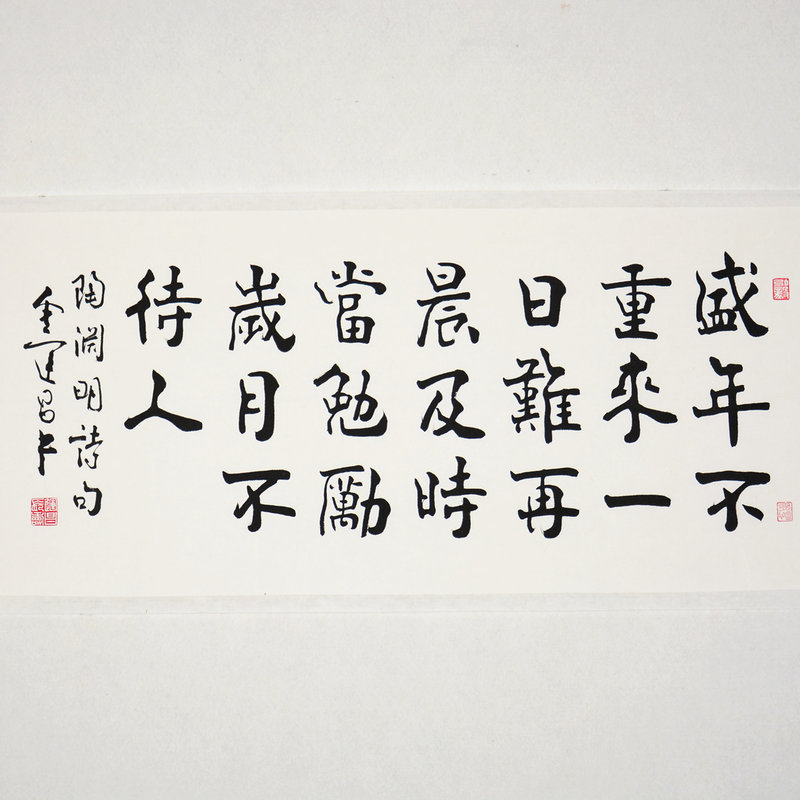 盛年不
重來一
日難再
晨及時
當勉勵
歲月不
待人
陶淵明詩句
建昌